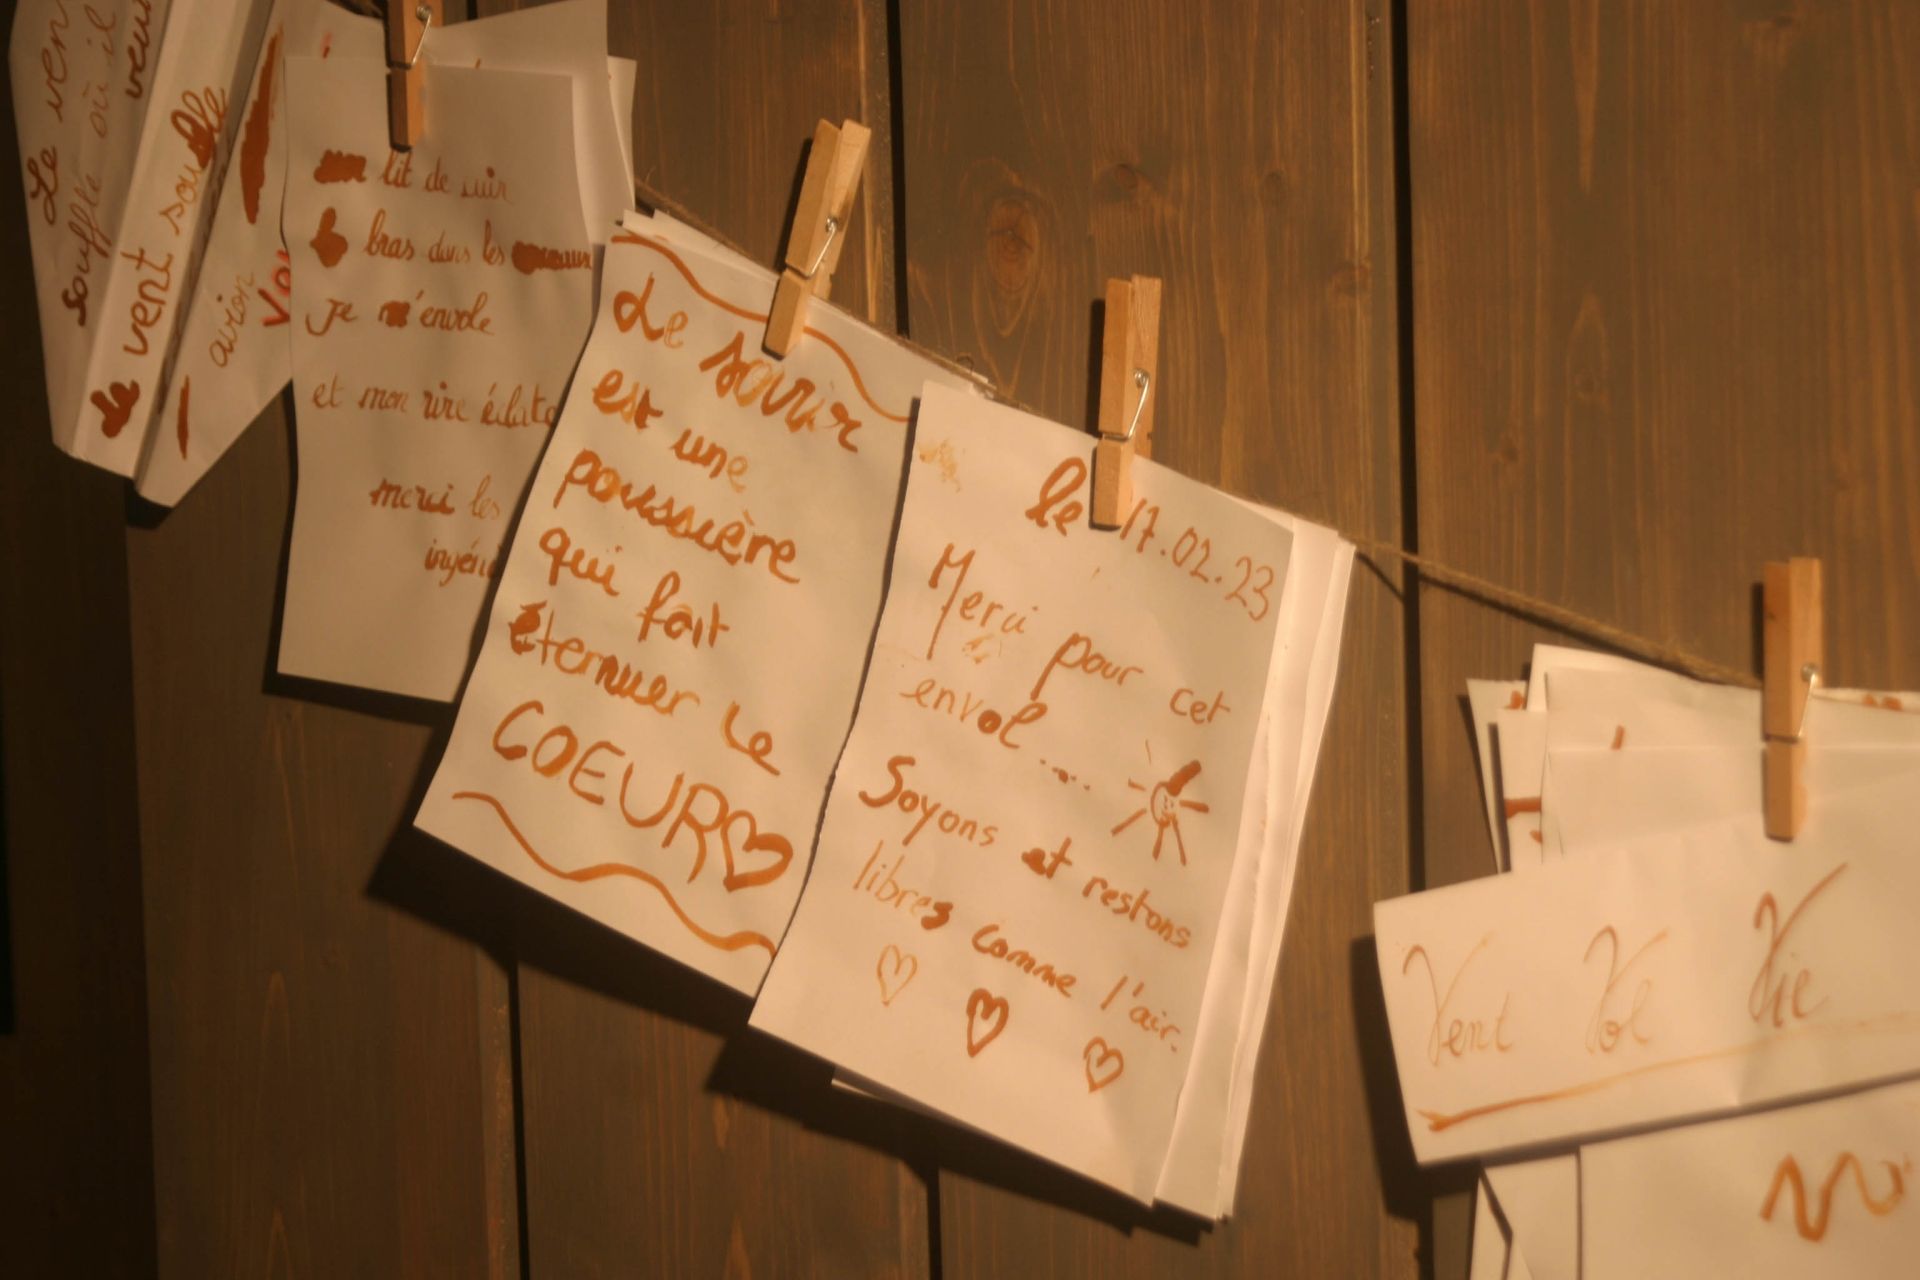 Le vent
souffle où il
veut
Le vent souffle
avion
lit de
bras dans les
je m'envole
et mon rire éclate
merci les
ingéni
Le sourir
est une
poussière
qui fait
éternuer le
COEUR
le 17.02.23
Merci pour cet
envol....
Soyons et restons
libres comme l'air.
Vent Vol Vie